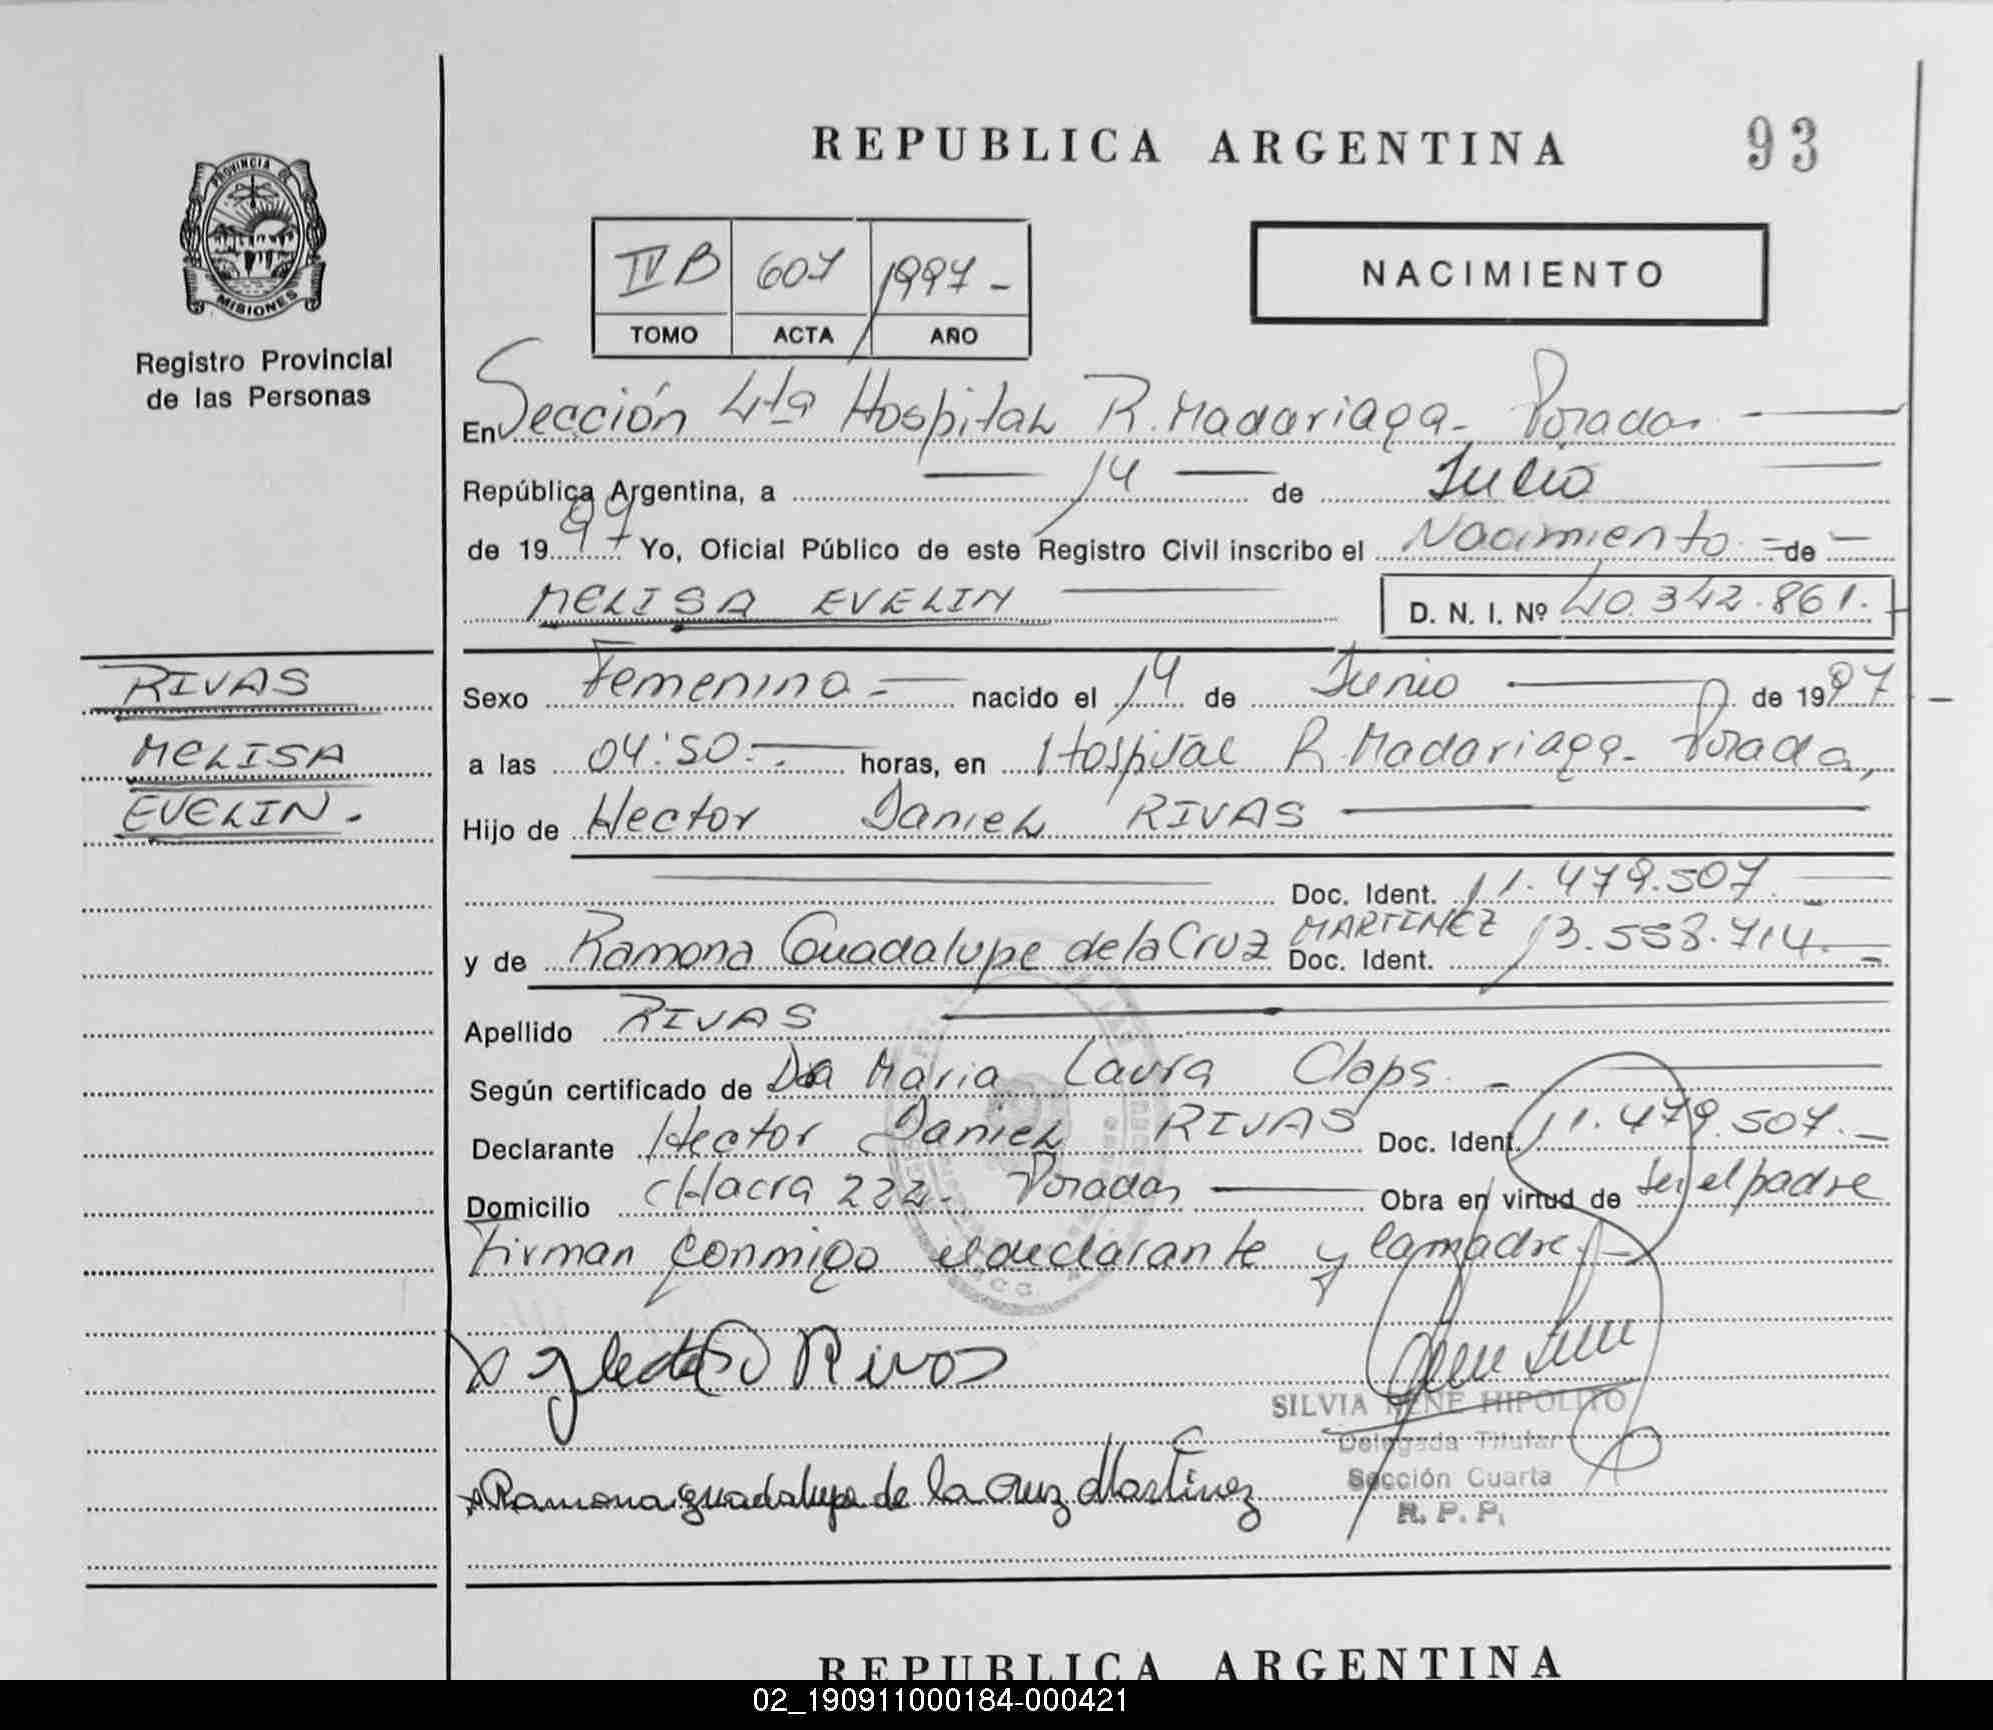 REPUBLICA ARGENTINA
93
PROVINCIA DE
MISIONES
Registro Provincial
de las Personas
IV B 607 1997 -
TOMO ACTA AÑO
NACIMIENTO
En Sección 4ta Hospital R. Madariaga - Posadas
República Argentina, a 14 de Julio
de 1997 Yo, Oficial Público de este Registro Civil inscribo el Nacimiento de
MELISA EVELIN
D. N. I. Nº 40.342.861.
RIVAS
MELISA
EVELIN.
Sexo Femenino nacido el 14 de Junio de 1997
a las 04:50 horas, en Hospital R. Madariaga - Posadas
Hijo de Hector Daniel RIVAS
Doc. Ident. 11.479.507
y de Ramona Guadalupe de la Cruz MARTINEZ Doc. Ident. 13.558.714
Apellido RIVAS
Según certificado de Dra Maria Laura Claps
Declarante Hector Daniel RIVAS Doc. Ident. 11.479.507
Domicilio CHacra 222 - Posadas Obra en virtud de ser el padre
Firman conmigo el declarante y la madre
Rivas
SILVIA IRENE HIPOLITO
Delegada Titular
Sección Cuarta
R. P. P.
Ramona guadalupe de la cruz Martinez
REPUBLICA ARGENTINA
02_190911000184-000421